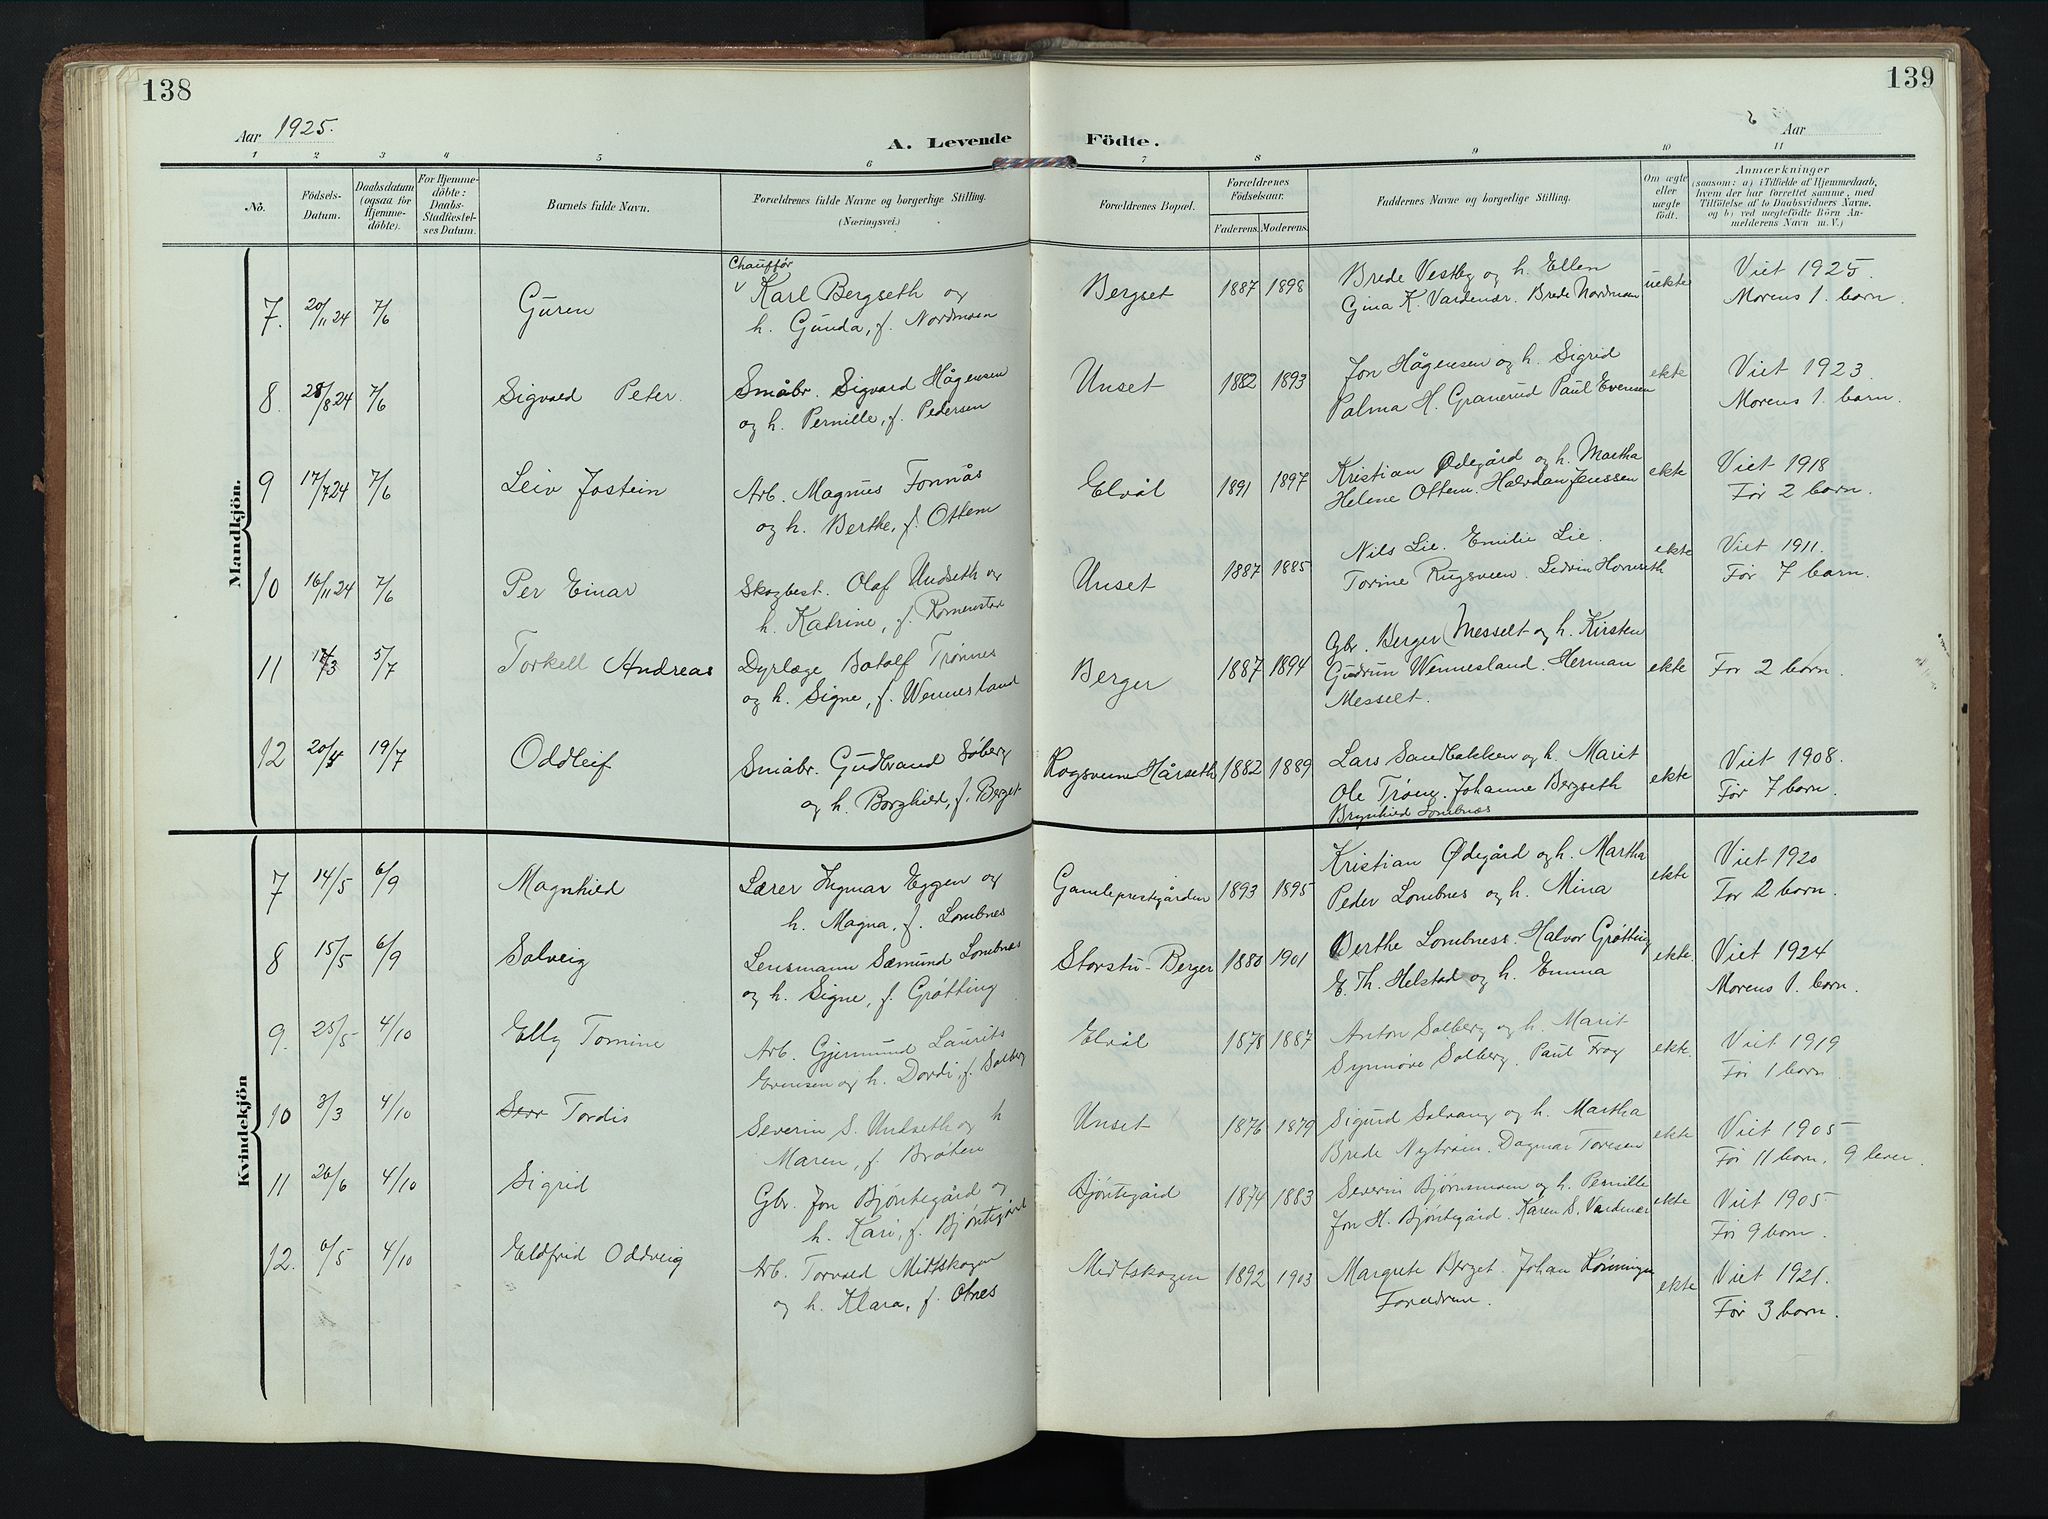 138
Aar 1925.
A. Levende
1 2 3 4 5 6
No.
Födsels-
Datum.
Daabsdatum
(ogsaa for
Hjemme-
döbte).
For Hjemme-
döbte:
Daabs-
Stadfæstel-
ses Datum.
Barnets fulde Navn.
Forældrenes fulde Navne og borgerlige Stilling.
(Næringsvei.)
Mandkjön.
Chauffør
7. 20/11 24 7/6 Guren Karl Bergseth og
h. Gunda, f. Nordmoen
8. 28/8 24 7/6 Sigvald Peter. Småbr. Sigvard Hågensen
og h. Pernille, f. Pedersen
9 17/7 24 7/6 Leiv Jostein Arb. Magnus Fonnås
og h. Berthe, f. Ottem
10 16/11 24 7/6 Per Einar Skogbest. Olaf Undseth og
h. Katrine, f.
11 5/7 Torkell Andreas Dyrlæge Botolf Trønnes
og h. Signe, f. Wennesland
12 20/4 19/7 Oddleif Småbr. Gudbrand Søberg
og h. Borghild, f. Berget
Kvindekjön
7 14/5 6/9 Magnhild Lærer Ingmar Eggen og
h. Magna, f. Lombnes
8 15/5 6/9 Solveig Lensmann Sæmund Lombnes
og h. Signe, f. Grøtting
9. 25/5 4/10 Elly Tomine Arb. Gjermund Laurits
Evensen og h. Dordi, f. Solberg
10 3/3 4/10 Tordis Severin S. Undseth og h
Maren, f. Bråten
11 26/6 4/10 Sigrid Gbr. Jon Bjøntegård og
h. Kari, f. Bjøntegård
12. 6/5 4/10 Eldfrid Oddveig Arb. Torvald Midtskogen
og h. Klara, f. Otnes
139
Aar
Födte.
7 8 9 10 11
Forældrenes Bopæl.
Forældrenes
Födselsaar.
Faderens. Moderens.
Faddernes Navne og borgerlige Stilling.
Om ægte
eller
uægte
födt.
Anmærkninger
(saasom: a) i Tilfælde af Hjemmedaab,
hvem der har forrettet samme, med
Tilföielse af to Daabsvidners Navne.
og b) ved uægtefödte Börn An-
melderens Navn m. V.)
Bergset 1887 1898 Brede Vestby og h. Ellen uekte Viet 1925.
Gina K. Vardenær. Brede Nordmoen Morens 1. barn.
Unset 1882 1893 Jon Hågensen og h. Sigrid ekte Viet 1923.
Palma H. Granerud Paul Evensen Morens 1. barn.
Elvål 1891 1897 Kristian Ødegård og h. Martha ekte Viet 1918
Helene Ottem. Halvdan Jenssen Før 2 barn.
Unset 1887 1885 Nils Lie. Emilie Lie. ekte Viet 1911.
Torine Rugsveen. Før 7 barn.
Berger 1887 1894 Gbr. Berger Messelt og h. Kirsten
Gudrun Wennesland. Herman ekte For 2 barn.
Messelt.
Hårseth 1882 1889 Lars Sandbakken og h. Marit ekte Viet 1908.
Ole Trøen. Johanne Bergseth Før 7 barn.
Brynhild Lombnæs
Gamleprestgården 1893 1895 Kristian Ødegård og h. Martha ekte Viet 1920
Peder Lombnes og h. Mina For 2 barn.
Storstu-Berger 1880 1901 Berthe Lombness. Halvor Grøtting ekte. Viet 1924
E. Th. Helstad og h. Emma Morens 1. barn.
Elvål 1878 1887 Anton Solberg og h. Marit ekte. Viet 1919
Synnøve Solberg. Paul Frog Før 1 barn.
Unset 1876 1879 Sigurd Solvang og h. Martha ekte Viet 1905
Brede Nytrøen. Dagmar Toresen Før 11 barn. 9 lever.
Bjøntegård 1874 1883 Severin Bjørnsmoen og h. Pernille ekte Viet 1905
Jon H. Bjøntegård. Karen S. Vardenær Før 9 barn.
Midtskogen 1892 1903 Margrete Berget. Johan Rønningen ekte Viet 1921.
Foreldrene. Før 3 barn.